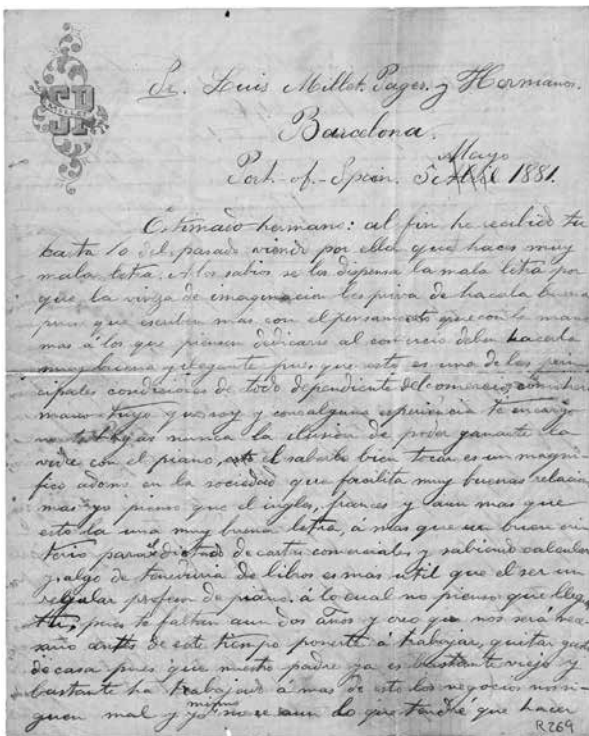 SP
Sr. Luis Millet Pages y Hermanos.
Barcelona.
Port-of-Spain. 5 Abril Mayo 1881.
Estimado hermano: al fin he recibido tu
carta 10 del pasado viendo por ella que haces muy
mala letra. A los sabios se les dispensa la mala letra por
que la viveza de imaginacion les priva de hacerla buena
pues que escriben mas con el pensamiento que con la mano
mas á los que piensen dedicarse al comercio deben hacerla
muy buena y elegante pues que esto es una de las prin
cipales condiciones de todo dependiente del comercio, como her
mano tuyo que soy y con alguna esperiencia te encargo
no te hagas nunca la ilusion de poder ganarte la
vida con el piano, el saberlo bien tocar es un magni
fico adorno en la sociedad que facilita muy buenas relacio
mas yo pienso que el ingles, frances y aun mas que
esto la una muy buena letra, á mas que un buen cri
terio para el dictado de cartas comerciales y sabiendo calcular
y algo de teneduria de libros es mas util que el ser un
regular profesor de piano. á lo cual no pienso que llegues
tu, pues te faltan aun dos años y creo que nos será nece
sario antes de este tiempo ponerte á trabajar, quitar gasto
de casa pues que nuestro padre ya es bastante viejo y
bastante ha trabajado á mas de esto los negocios nos si
guen mal y yo mismo no se aun lo que tendré que hacer
R269